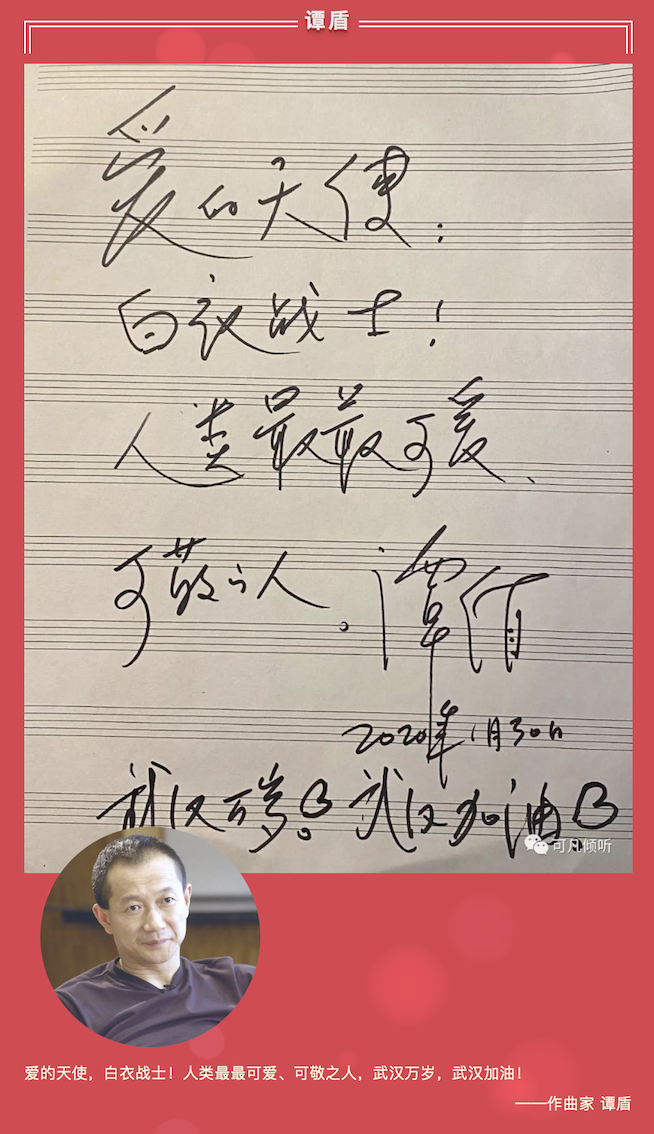 谭盾
爱的天使：
白衣战士！
人类最最可爱、
可敬之人。谭盾
2020年1月30日
武汉万岁。武汉加油
可凡倾听
爱的天使，白衣战士！人类最最可爱、可敬之人，武汉万岁，武汉加油！
——作曲家 谭盾